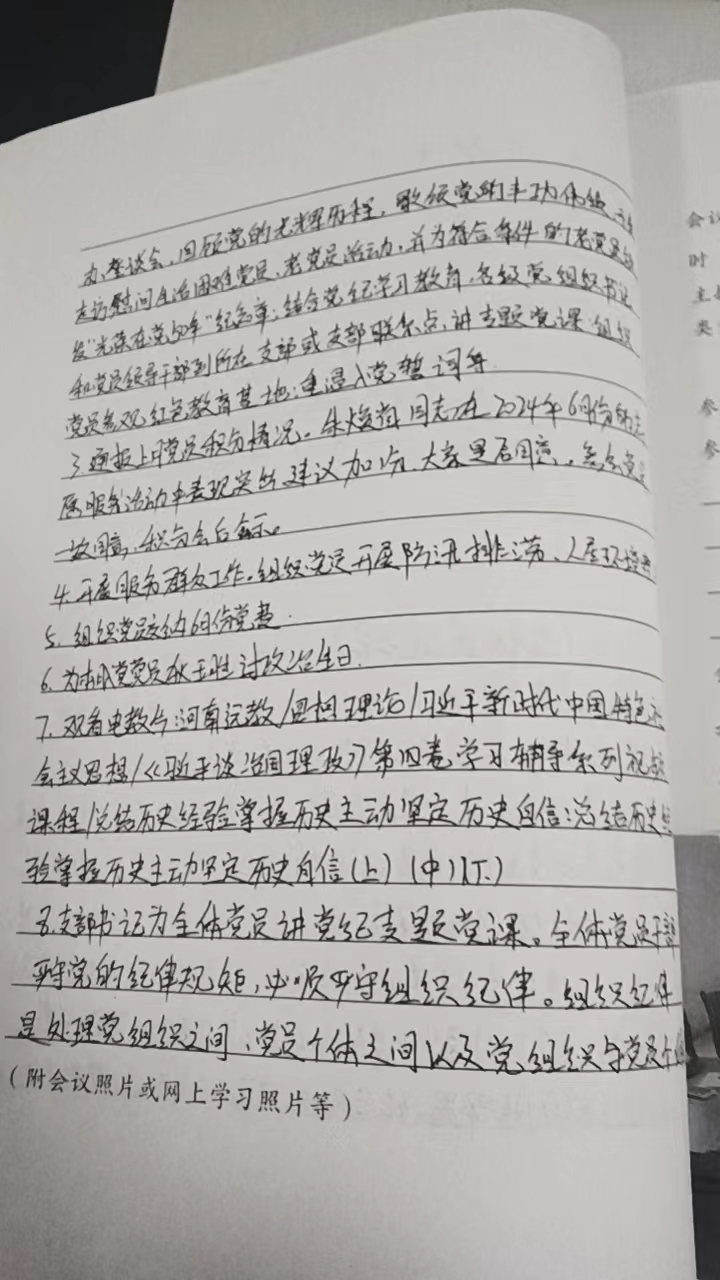 办座谈会,回顾党的光辉历程,歌颂党的丰功伟绩
走访慰问生活困难党员、老党员活动,并为符合条件的老党员
发"光荣在党50年"纪念章;结合党纪学习教育,各级党组织书记
和党员领导干部到所在支部或支部联系点,讲专题党课;组织
党员参观红色教育基地;重温入党誓词等
3 通报上月党员积分情况。同志在2024年6月份的志
愿服务活动中表现突出,建议加分,大家是否同意。参会党员
一致同意,积分会后公示。
4.开展服务群众工作。组织党员开展防汛排涝、人居环境
5.组织党员交纳6月份党费.
6.为本月党员过政治生日.
7.观看电教片:河南远教/思想理论/习近平新时代中国特色社
会主义思想/《习近平谈治国理政》第四卷学习辅导系列视频
课程/总结历史经验掌握历史主动坚定历史自信:总结历史经
验掌握历史主动坚定历史自信(上)(中)(下)
8.支部书记为全体党员讲党纪专题党课。全体党员干部
严守党的纪律规矩,必须严守组织纪律。组织纪律
是处理党组织之间、党员个体之间以及党组织与党员个
(附会议照片或网上学习照片等)
会议
时
主
类
参
参